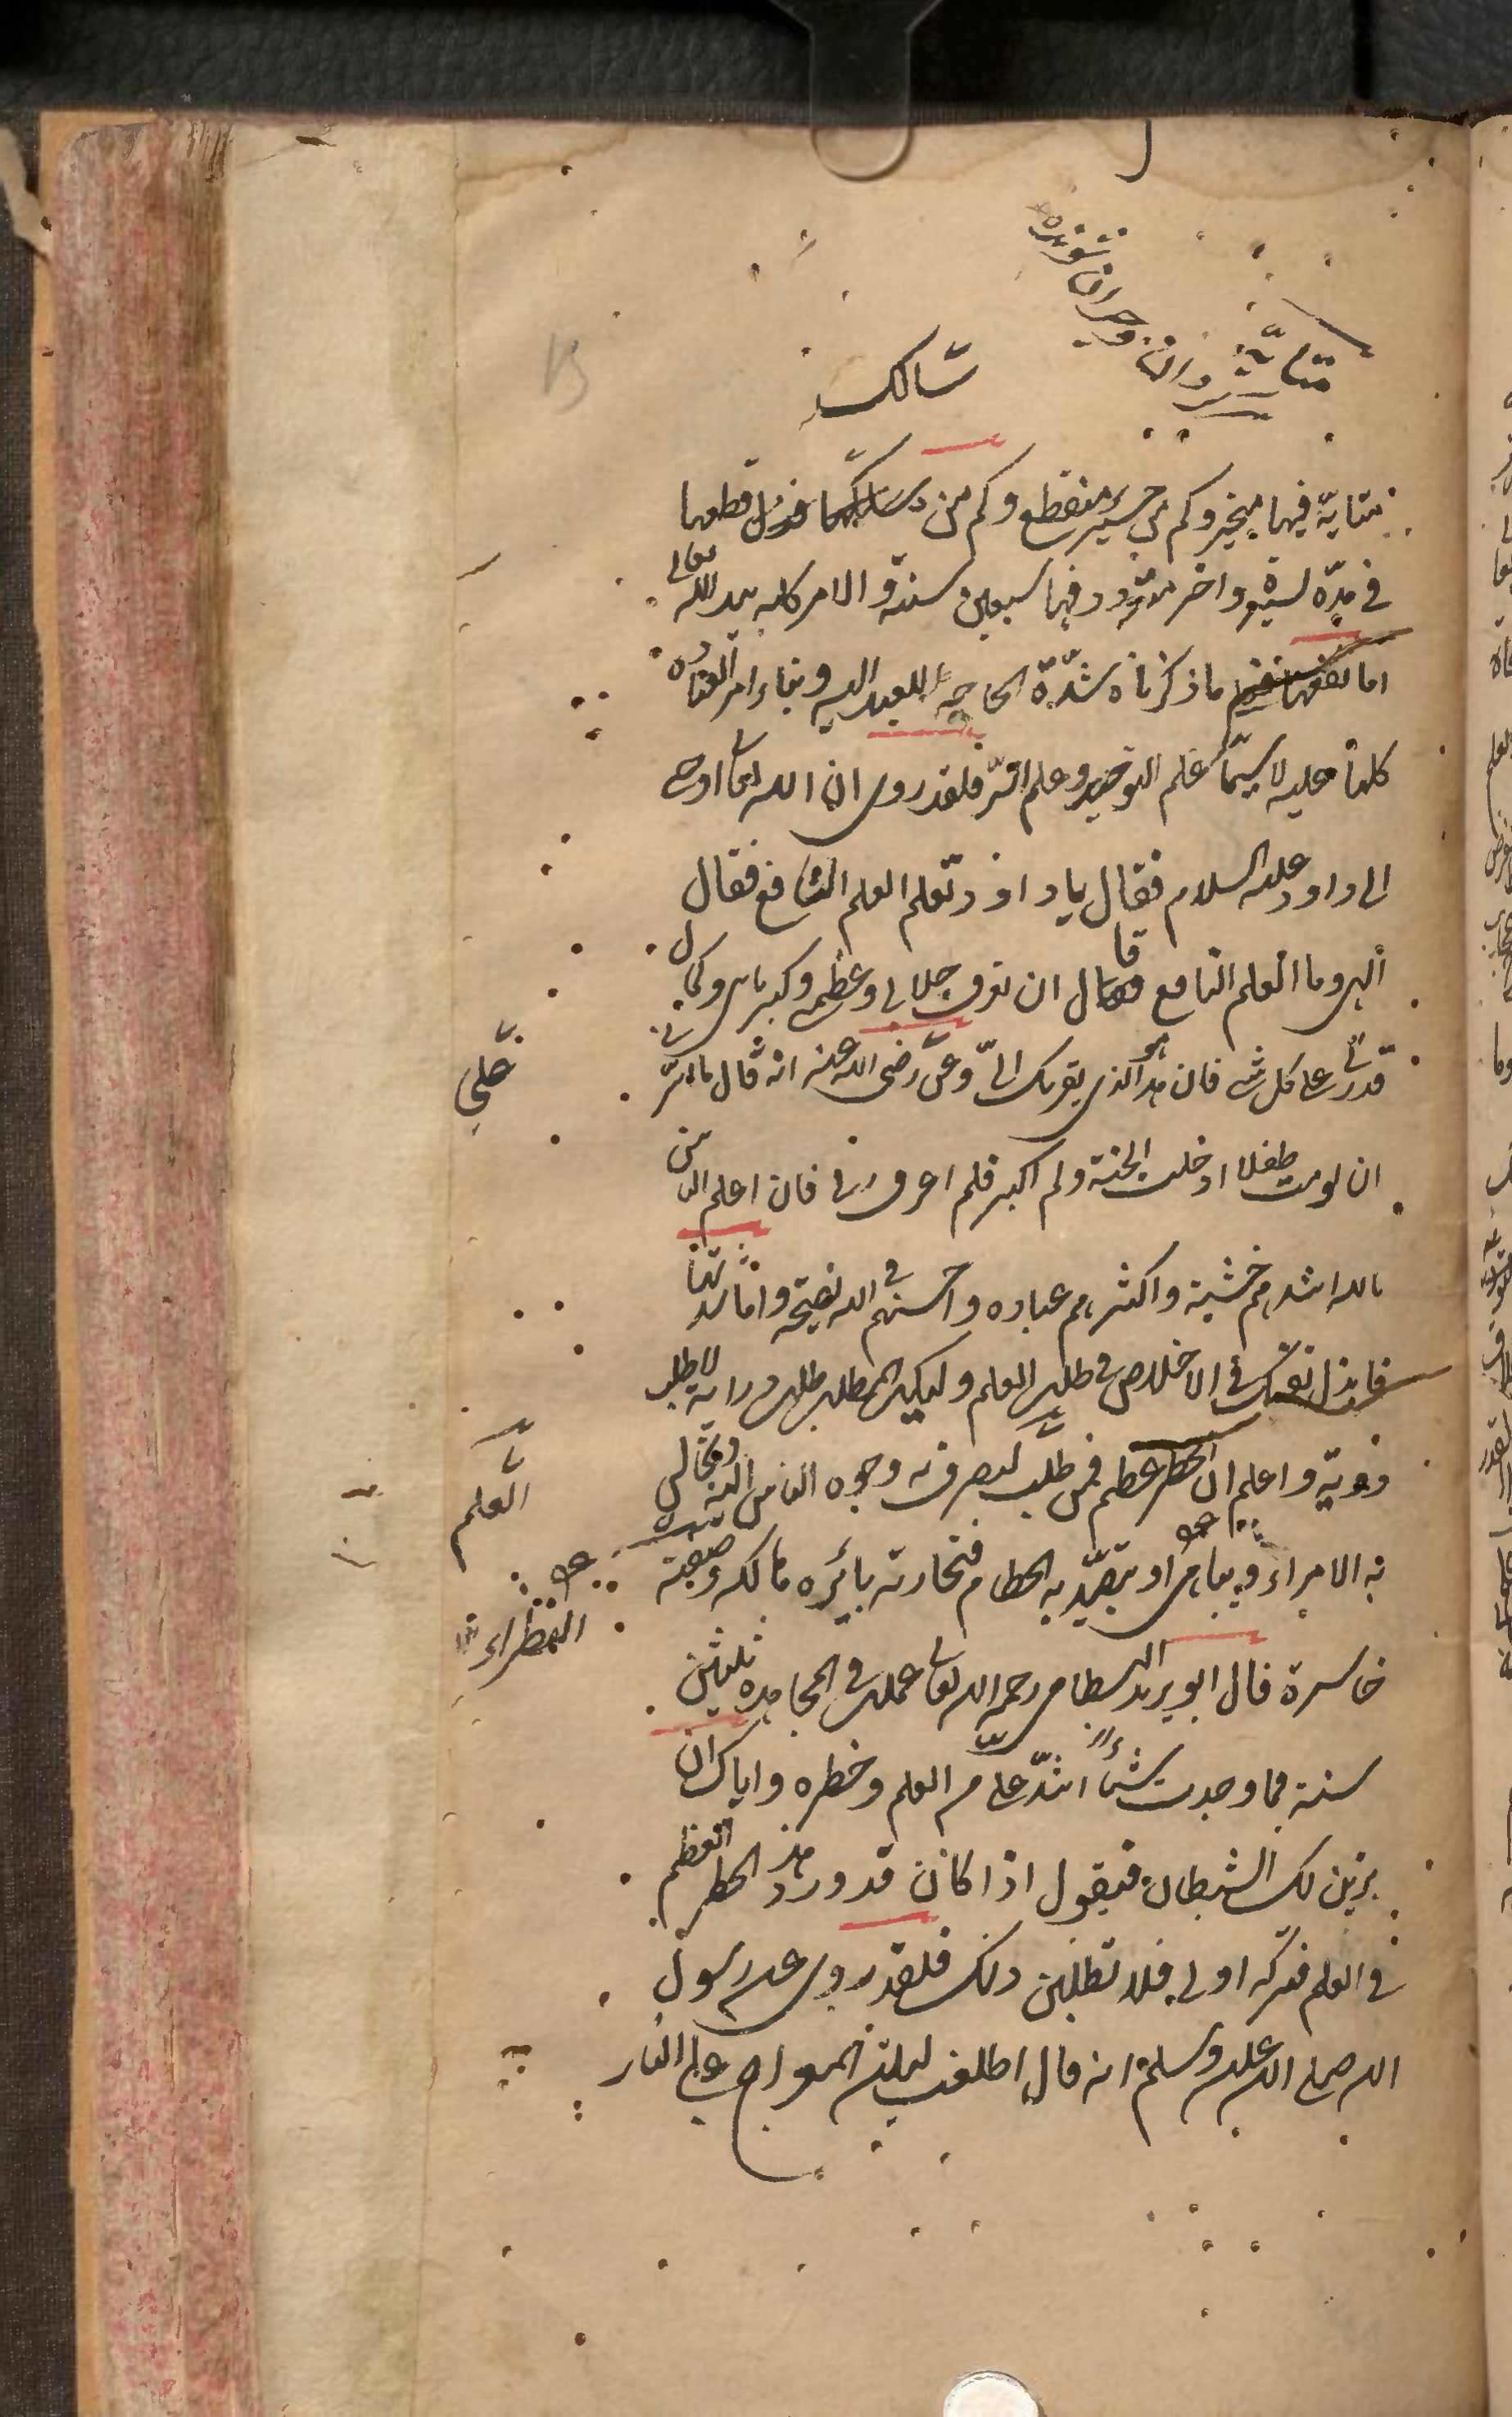 سالك
متايّة فيها متحير وكم من حسير منقطع وكم من سالك قطعها
في مدّة يسيرة واخر متردد فيها سبعين سنة والامر كله بيد الله تعالى
اما نفعها ما ذكرناه شدّة الحاجة للعبد اليه وبناء امر العبادة
كلها عليه لا سيّما علم التوحيد وعلم السّر فلقد روى ان الله تعالى اوحى
الى داود عليه السلام فقال يا داود تعلم العلم النافع فقال
الهي وما العلم النافع قال ان تعرف جلالي وعظمتي وكبريائي وكمال
قدرتي على كل شئ فان هذا الذي يقربك الىّ وعن علي رضى الله عنه انه قال ما يسّرني
ان لو مت طفلا ادخلت الجنة ولم اكبر فلم اعرف ربي فان اعلم الناس
بالله اشدهم خشية واكثرهم عبادة واحسنهم في الله نصيحة واما شدتها
فابذل نفسك في الاخلاص في طلب العلم وليكن الطلب طلب دراية لا طلب
رواية واعلم ان الخطر عظيم فمن طلب العلم ليصرف به وجوه الناس اليه ويجالس
به الامراء ويباهي به النظراء او يتصيّد به الحطام فتجارته بائرة هالكة وصفقته
خاسرة قال ابو يزيد البسطامي رحمه الله تعالى عملت في المجاهدة ثلثين
سنة فما وجدت شئاً اشدّ عليّ من العلم وخطره واياك ان
يزين لك الشيطان فيقول اذا كان قد ورد هذا الخطر العظيم
في العلم فتركه اولى فلا تظنن ذلك فلقد روى عن رسول
الله صلى الله عليه وسلم انه قال اطلعت ليلة المعراج على النار
علي
العلم
النظراء